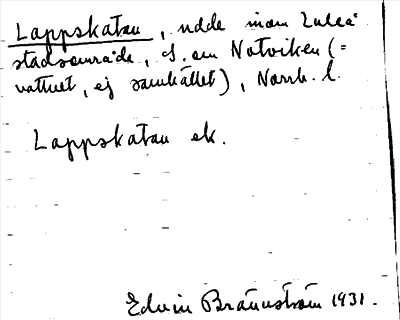 Lappskatan, udde inom Luleå
stadsområde, S. om Notviken (=
vattnet, ej samhället), Norrb. l.
Lappskatan ek.
Edvin Brännström 1931.